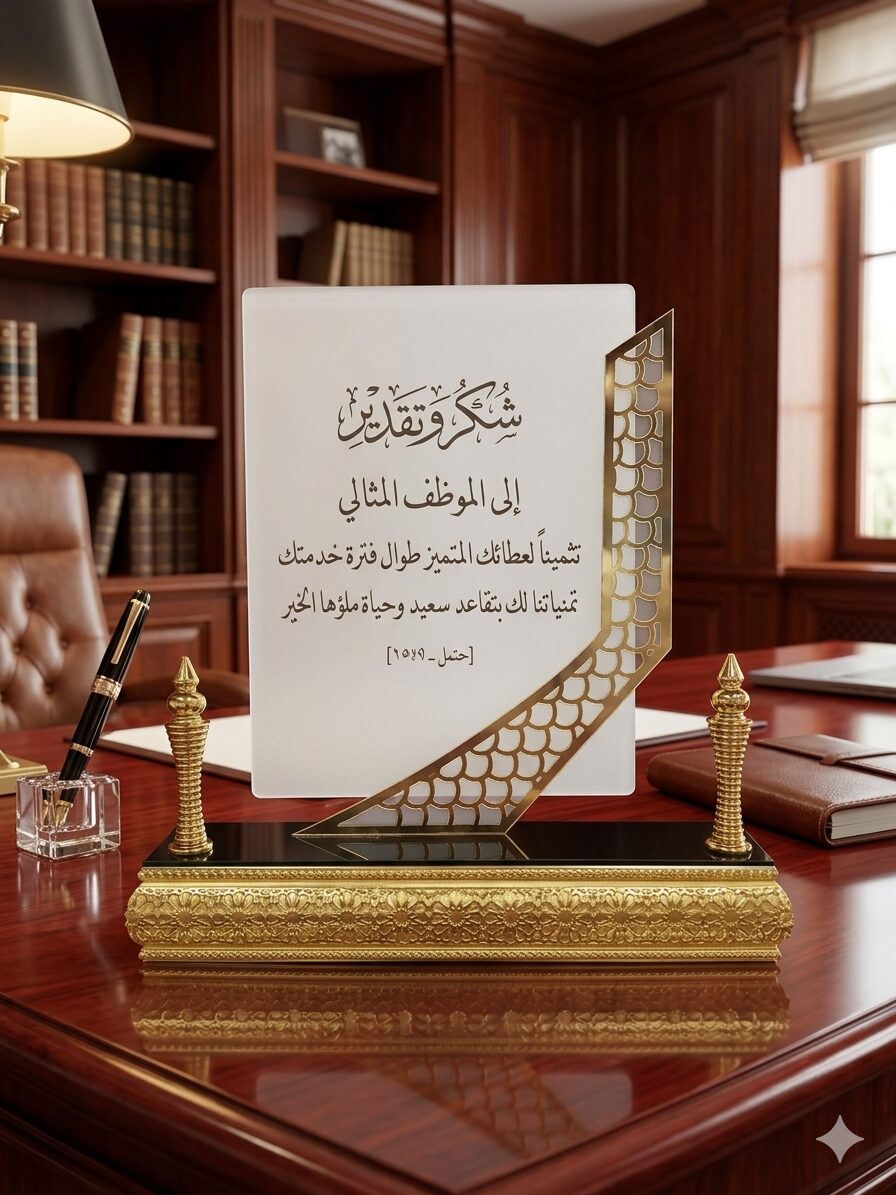 شُكْرُ وَتَقْدِيرِ
إلى الموظف المثالي
تثميناً لعطائك المتميز طوال فترة خدمتك
تمنياتنا لك بتقاعد سعيد وحياة ملؤها الخير